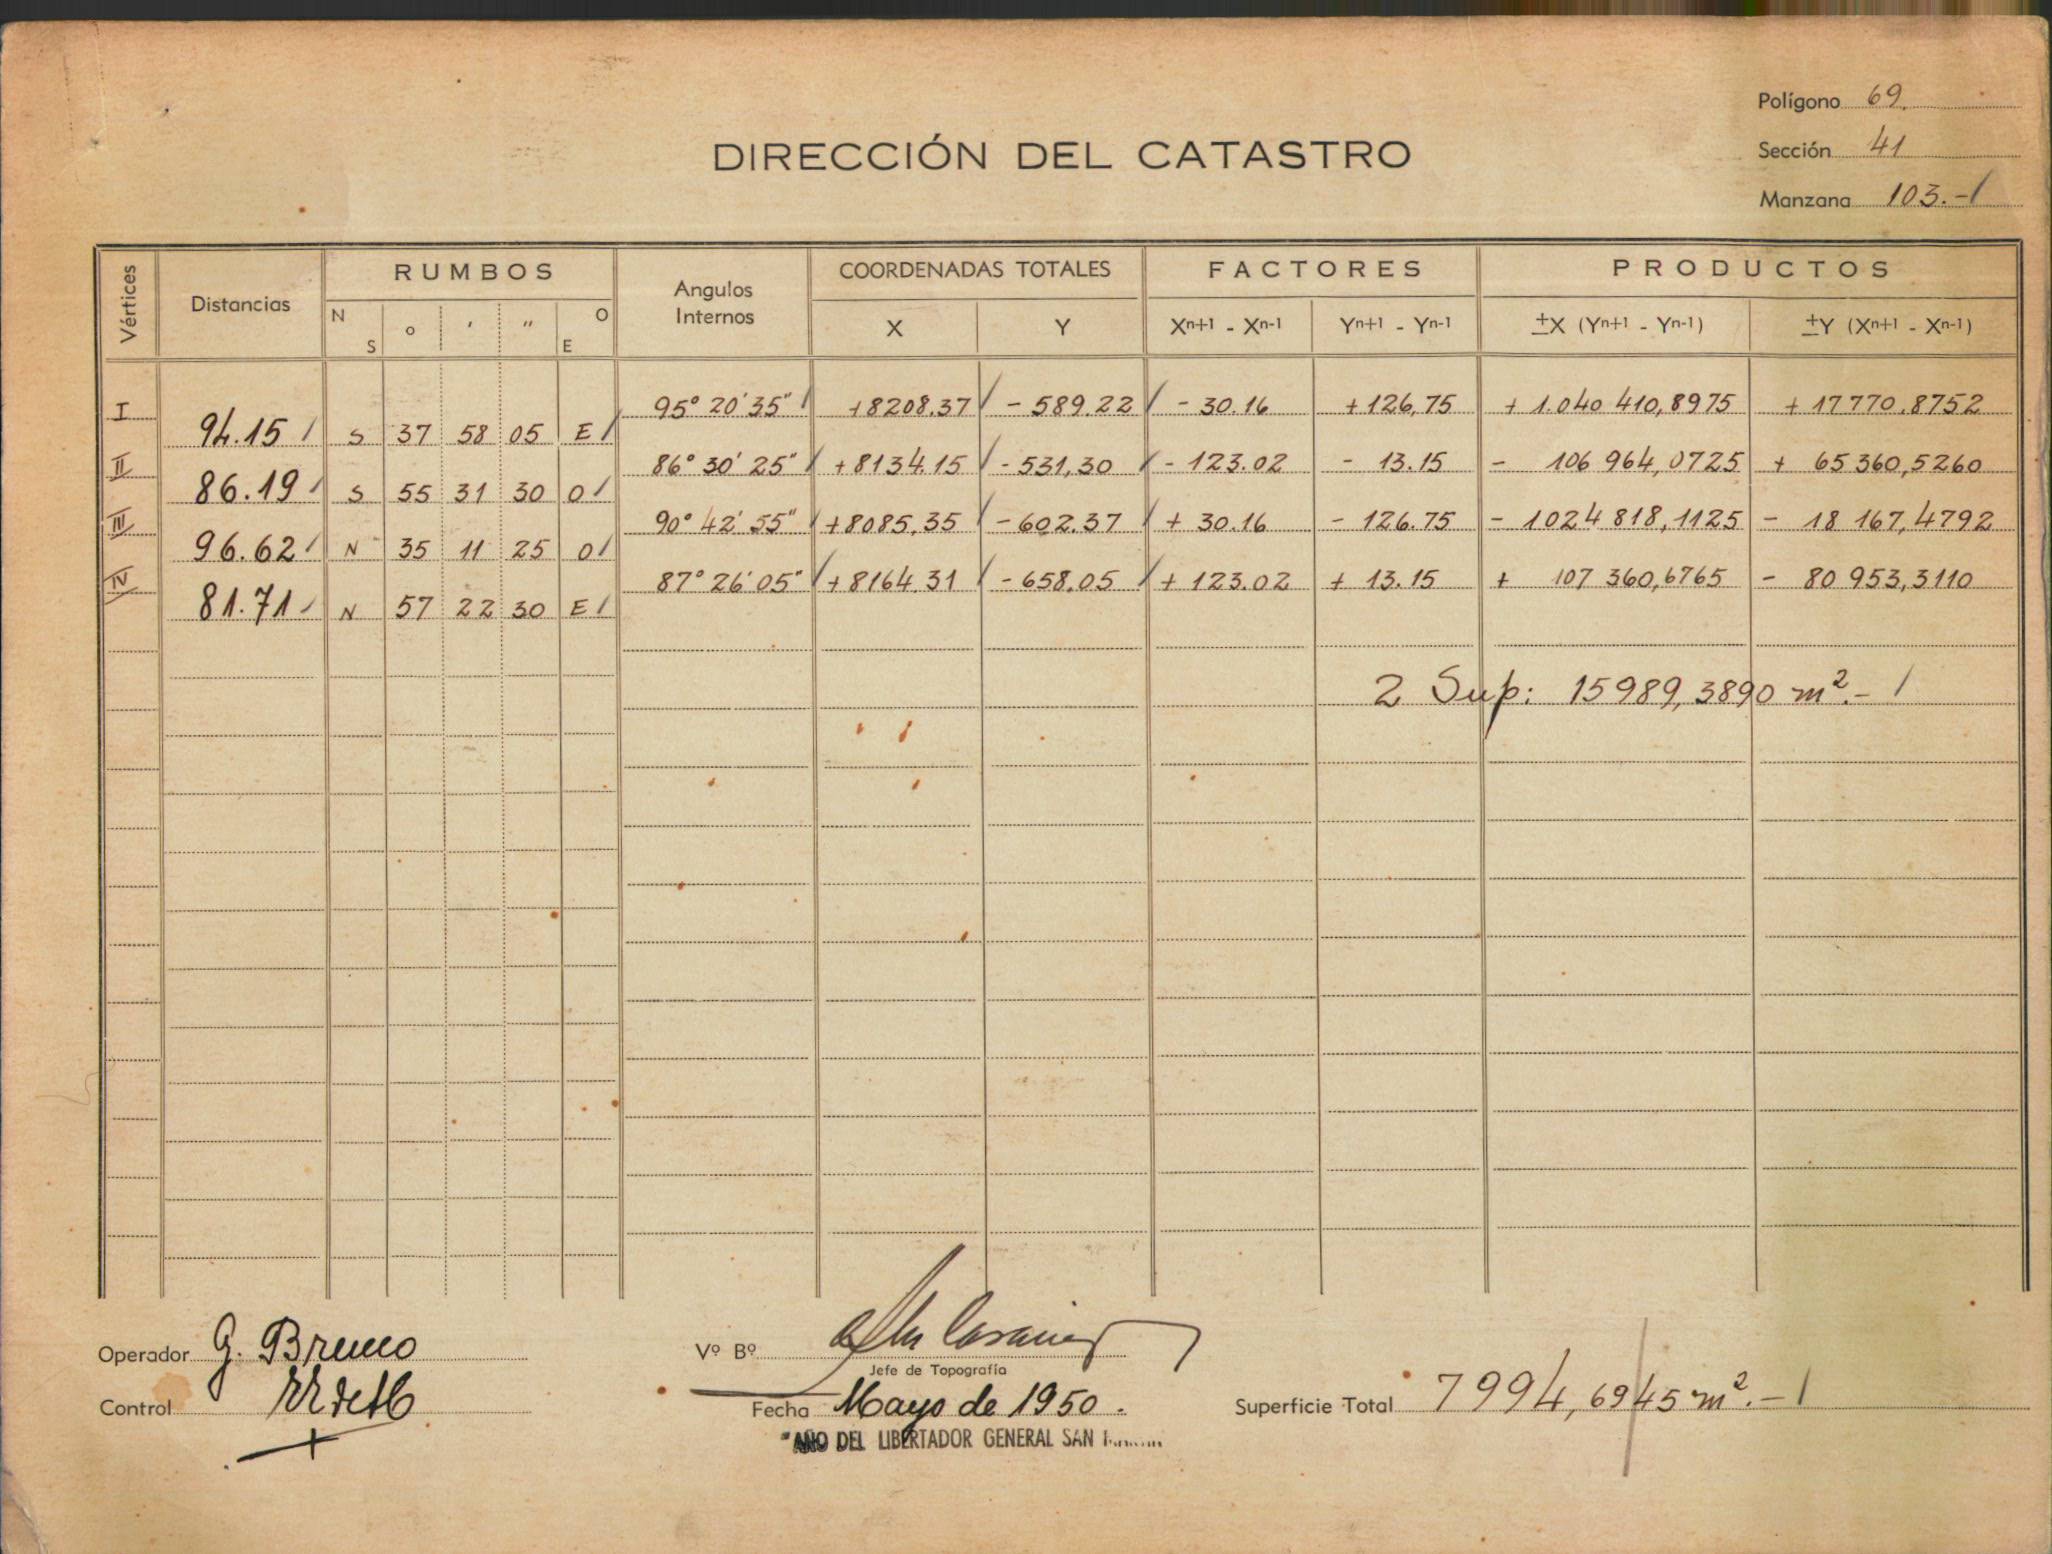 Polígono 69.
Sección 41
Manzana 103.-
DIRECCIÓN DEL CATASTRO
Vértices Distancias RUMBOS Angulos Internos COORDENADAS TOTALES FACTORES PRODUCTOS
N S o ' " O E X Y Xn+1 - Xn-1 Yn+1 - Yn-1 ±X (Yn+1 - Yn-1) ±Y (Xn+1 - Xn-1)
I 95° 20' 35" +8208.37 - 589.22 - 30.16 +126,75 + 1.040 410,8975 + 17 770.8752
94.15 S 37 58 05 E
II 86° 30' 25" +8134.15 - 531,30 - 123.02 - 13.15 - 106 964,0725 + 65 360,5260
86.19 S 55 31 30 O
III 90° 42' 55" +8085,35 - 602.37 + 30.16 - 126.75 - 1024 818,1125 - 18 167,4792
96.62 N 35 11 25 O
IV 87° 26' 05" +8164.31 - 658.05 + 123.02 + 13.15 + 107 360,6765 - 80 953,3110
81.71 N 57 22 30 E
2 Sup: 15989,3890 m².-
Operador G. Bruno
Vº Bº
Jefe de Topografía
Control
Fecha Mayo de 1950.
Superficie Total 7994,6945 m².-
"AÑO DEL LIBERTADOR GENERAL SAN